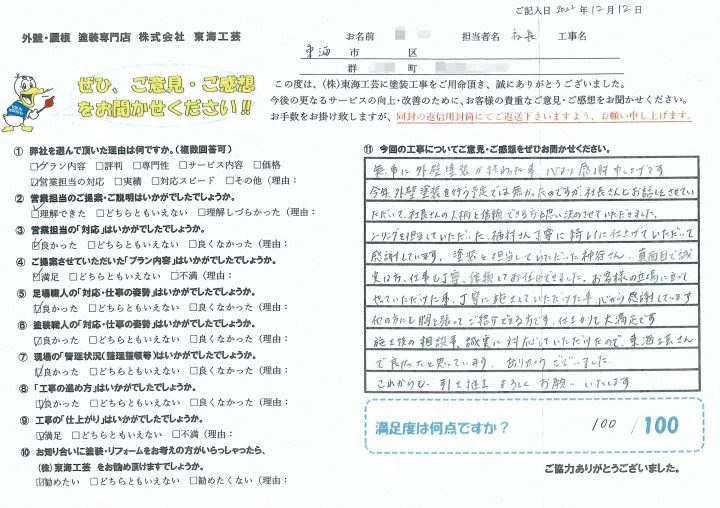 ご記入日 2022年12月12日
外壁・屋根 塗装専門店 株式会社 東海工芸
お名前 担当者名 社長 工事名
東海 市 区
郡 町
ぜひ、ご意見・ご感想
をお聞かせください!!
この度は、(株)東海工芸に塗装工事をご用命頂き、誠にありがとうございました。
今後の更なるサービスの向上・改善のために、お客様の貴重なご意見・ご感想をお聞かせください。
お手数をお掛け致しますが、同封の返信用封筒にてご返送下さいますよう、お願い申し上げます。
① 弊社を選んで頂いた理由は何ですか。(複数回答可)
□プラン内容 □評判 □専門性 □サービス内容 □価格
☑営業担当の対応 □実績 □対応スピード □その他(理由:
② 営業担当のご提案・ご説明はいかがでしたでしょうか。
☑理解できた □どちらともいえない □理解しづらかった(理由:
③ 営業担当の「対応」はいかがでしたでしょうか。
☑良かった □どちらともいえない □良くなかった(理由:
④ ご提案させていただいた「プラン内容」はいかがでしたでしょうか。
☑満足 □どちらともいえない □不満(理由:
⑤ 足場職人の「対応・仕事の姿勢」はいかがでしたでしょうか。
☑良かった □どちらともいえない □良くなかった(理由:
⑥ 塗装職人の「対応・仕事の姿勢」はいかがでしたでしょうか。
☑良かった □どちらともいえない □良くなかった(理由:
⑦ 現場の「管理状況(整理整頓等)」はいかがでしたでしょうか。
☑良かった □どちらともいえない □良くなかった(理由:
⑧ 「工事の進め方」はいかがでしたでしょうか。
☑良かった □どちらともいえない □良くなかった(理由:
⑨ 工事の「仕上がり」はいかがでしたでしょうか。
☑満足 □どちらともいえない □不満(理由:
⑩ お知り合いに塗装・リフォームをお考えの方がいらっしゃったら、
(株)東海工芸 をお勧め頂けますでしょうか。
☑勧めたい □どちらともいえない □勧めたくない(理由:
⑪ 今回の工事についてご意見・ご感想をぜひお聞かせください。
無事に外壁塗装が終わった事、心より感謝申し上げです
今年、外壁塗装を行う予定では無かったのですが、社長さんとお話しをさせてい
ただいて、社長さんの人柄と信頼できる方と思い決めさせていただきました。
シーリングを担当していただいた、植村さん丁寧に綺レイに仕上げていただいて
感謝しています。塗装を担当していただいた神谷さん、真面目で誠
実な方、仕事も丁寧、信頼してお任せできました。お客様の立場に立って
やっていただけた事、丁寧に施工していただけた事、心から感謝しています
他の方にも胸を張ってご紹介できる方です。仕上がりも大満足です
施工後の相談事、誠実に対応していただけたので、東海工芸さん
で良かったと思っています。ありがとうございました。
これからも、引き続き よろしくお願いいたします
満足度は何点ですか? 100 /100
ご協力ありがとうございました。